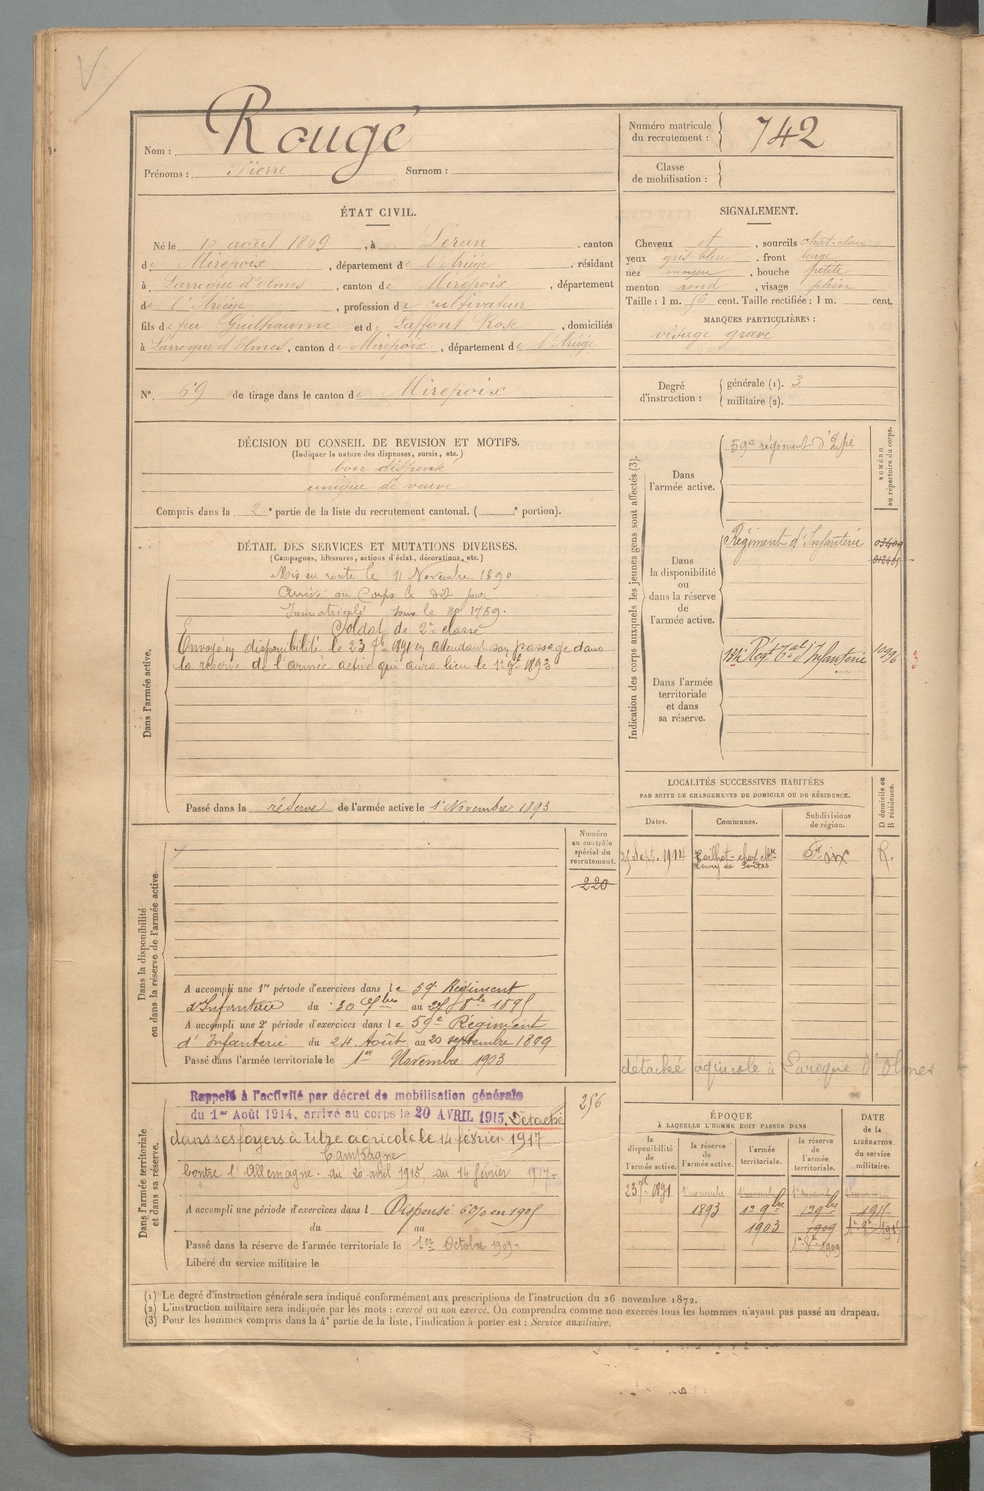 Rougé
Nom :
Prénoms : Pierre Surnom :
Numéro matricule du recrutement : 742
Classe de mobilisation :
ÉTAT CIVIL.
Né le 10 août 1869, à Léran, canton
de Mirepoix, département de l'Ariège, résidant
à Larroque d'olmes, canton de Mirepoix, département
de l'Ariège, profession de cultivateur
fils de feu Guilhaume et de Laffont Rose, domiciliés
à Larroque d'Olmes, canton de Mirepoix, département de l'Ariège
N° 69 de tirage dans le canton de Mirepoix
SIGNALEMENT.
Cheveux et, sourcils chat. clair
yeux gris bleu, front large
nez moyen, bouche petite
menton rond, visage plein
Taille : 1 m. 56 cent. Taille rectifiée : 1 m. cent.
MARQUES PARTICULIÈRES :
visage gravé
Degré d'instruction : générale (1). 3
militaire (2).
DÉCISION DU CONSEIL DE REVISION ET MOTIFS.
(Indiquer la nature des dispenses, sursis, etc.)
bon dispensé
unique de veuve
Compris dans la 2e partie de la liste du recrutement cantonal. ( e portion).
DÉTAIL DES SERVICES ET MUTATIONS DIVERSES.
(Campagnes, blessures, actions d'éclat, décorations, etc.)
Dans l'armée active.
Mis en route le 11 Novembre 1890
Arrivé au Corps le dit jour
Immatriculé sous le N° 1759.
Soldat de 2e classe
Envoyé en disponibilité le 23 7bre 1891 en attendant son passage dans
la réserve de l'armée active qui aura lieu le 1er 9bre 1893
Passé dans la réserve de l'armée active le 1er Novembre 1893
Indication des corps auxquels les jeunes gens sont affectés (3).
NUMÉRO au répertoire du corps.
Dans l'armée active.
59e régiment d'Infie
Dans la disponibilité ou dans la réserve de l'armée active.
Régiment d'Infanterie
Dans l'armée territoriale et dans sa réserve.
Régt Tal d'Infanterie 10996
3
LOCALITÉS SUCCESSIVES HABITÉES
PAR SUITE DE CHANGEMENTS DE DOMICILE OU DE RÉSIDENCE.
Dates. Communes. Subdivisions de région. D domicile ou R résidence.
Sept. 1914 Foix R.
détaché agricole à Laroque d'Olmes
Dans la disponibilité ou dans la réserve de l'armée active.
Numéro au contrôle spécial du recrutement.
220
A accompli une 1re période d'exercices dans le 59e Régiment
d'Infanterie du 30 7bre au 27 8bre 1895
A accompli une 2e période d'exercices dans le 59e Régiment
d'Infanterie du 24 Août au 20 septembre 1899
Passé dans l'armée territoriale le 1er Novembre 1903
Dans l'armée territoriale et dans sa réserve.
256
Rappelé à l'activité par décret de mobilisation générale
du 1er Août 1914, arrivé au corps le 20 AVRIL 1915, Détaché
dans ses foyers à titre agricole le 14 février 1917
Campagne
Contre l'Allemagne. du 20 avril 1915, au 14 février 1917
A accompli une période d'exercices dans l Dispensé 6% en 1905
du au
Passé dans la réserve de l'armée territoriale le 1er Octobre 1909
Libéré du service militaire le
ÉPOQUE
À LAQUELLE L'HOMME DOIT PASSER DANS
la disponibilité de l'armée active. la réserve de l'armée active. l'armée territoriale. la réserve de l'armée territoriale.
DATE de la LIBÉRATION du service militaire.
23 7bre 1891
1er novembre 1893
1er 9bre 1903
1er 9bre 1909
1er 8bre 1909
1915
(1) Le degré d'instruction générale sera indiqué conformément aux prescriptions de l'instruction du 26 novembre 1872.
(2) L'instruction militaire sera indiquée par les mots : exercé ou non exercé. On comprendra comme non exercés tous les hommes n'ayant pas passé au drapeau.
(3) Pour les hommes compris dans la 4e partie de la liste, l'indication à porter est : Service auxiliaire.